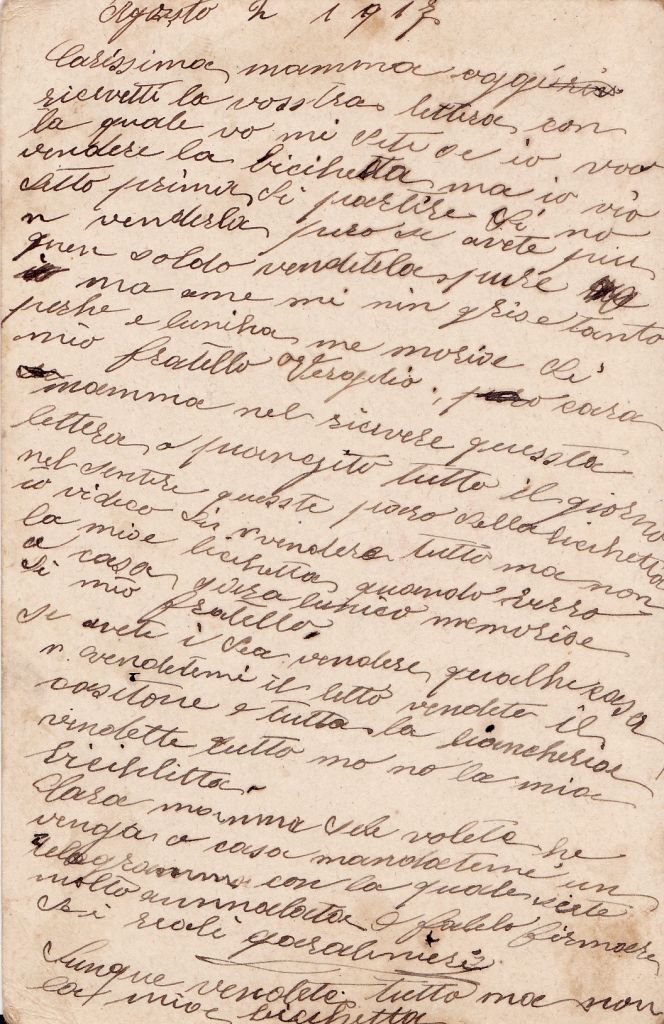 Agosto 2 1917
Carissima mamma oggi
ricevetti la vosstra lettera con
la quale vo mi dite se io voo
vendere la bicichetta ma io vio
detto prima di partire di no
n venderla pero se avete piu
quen soldo venditela pure
ma ame mi nin gris e tanto
perhe e luniha me morioe di
mio fratello Vergilio, pero cara
mamma nel ricevere quessta
lettera o piangito tutto il giorno
nel sentire queste paro della bicichetta
io vidico di vendere tutto ma non
la mioe bicichetta quando verro
a casa sara lunico memorioe
di mio fratello,
se avete i dea vendere qualhe cosa
n. vendetemi il letto vendete il
casitone e tutta la biancherioe
vendette tutto mo no la mia
biciclitta.
Cara mamma sele volete he
venga a casa mandatemi un
telegramma con la quale siete
molto ammalata e fatelo firmare
di riali carabinieri
Dunque vendete tutto ma non
la mioe bicichetta